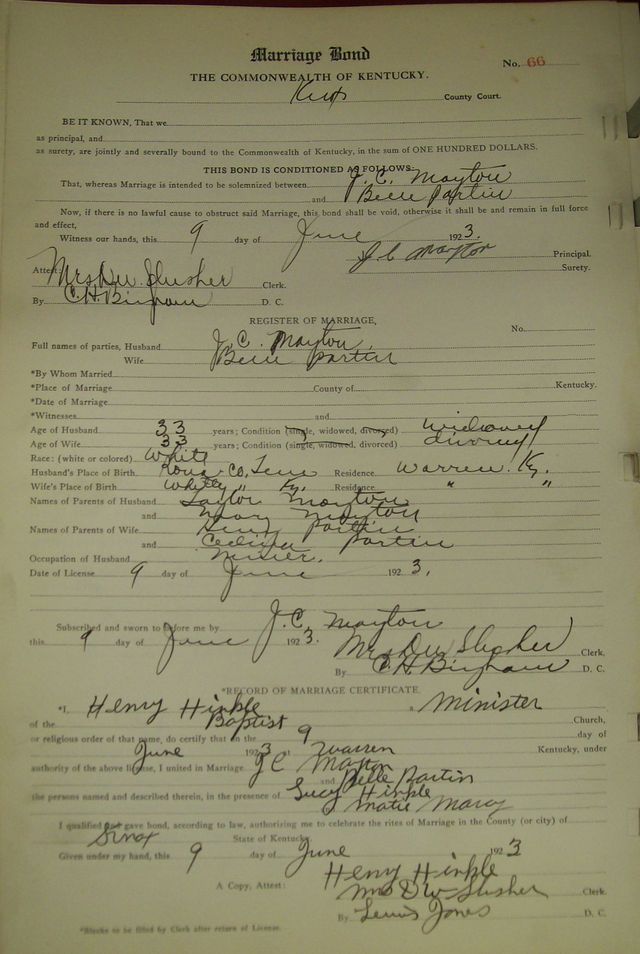 Marriage Bond
No. 66
THE COMMONWEALTH OF KENTUCKY.
Knox County Court.
BE IT KNOWN, That we
as principal, and
as surety, are jointly and severally bound to the Commonwealth of Kentucky, in the sum of ONE HUNDRED DOLLARS.
THIS BOND IS CONDITIONED AS FOLLOWS:
That, whereas Marriage is intended to be solemnized between J. C. Mayton
and Belle Partin
Now, if there is no lawful cause to obstruct said Marriage, this bond shall be void, otherwise it shall be and remain in full force
and effect,
Witness our hands, this 9 day of June 1923.
J. C. Mayton Principal.
Attest: Surety.
Mrs D W Slusher Clerk.
By C. H. Bingham D. C.
REGISTER OF MARRIAGE,
No.
Full names of parties, Husband J. C. Mayton
Wife Belle Partin
*By Whom Married
*Place of Marriage County of Kentucky.
*Date of Marriage
*Witnesses and
Age of Husband 33 years; Condition (single, widowed, divorced) widowed
Age of Wife 33 years; Condition (single, widowed, divorced)
Race: (white or colored) White
Husband's Place of Birth Co, Tenn Residence Warren. Ky.
Wife's Place of Birth Whitley " Ky. Residence " "
Names of Parents of Husband Taylor Mayton
and Mary Mayton
Names of Parents of Wife Partin
and Partin
Occupation of Husband Miner.
Date of License 9 day of June 1923.
Subscribed and sworn to before me by J. C. Mayton
this 9 day of June 1923.
Mrs D W Slusher Clerk,
By C. H. Bingham D. C.
*RECORD OF MARRIAGE CERTIFICATE.
*I, Henry Hinkle a Minister
of the Baptist Church,
or religious order of that name, do certify that on the 9 day of
June 1923 at Warren Kentucky, under
authority of the above license, I united in Marriage J C Mayton
and Belle Partin
the persons named and described therein, in the presence of Lucy Hinkle
Matie Marcy
I qualified and gave bond, according to law, authorizing me to celebrate the rites of Marriage in the County (or city) of
Knox State of Kentucky.
Given under my hand, this 9 day of June 1923
Henry Hinkle
A Copy, Attest: Mrs D W Slusher Clerk.
By Lewis Jones D. C.
*Blanks to be filed by Clerk after return of License.